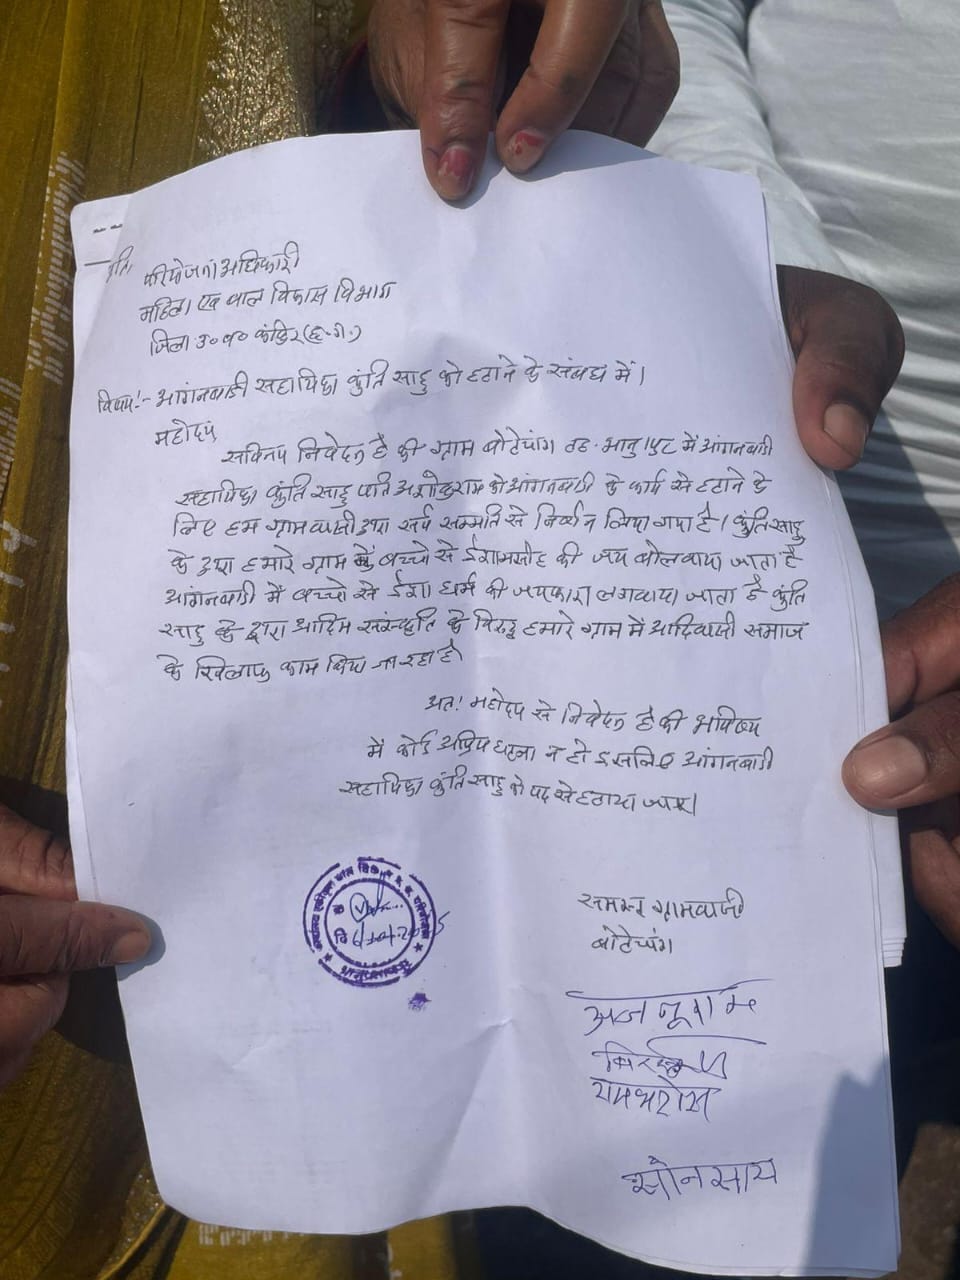 प्रति,
परियोजना अधिकारी
महिला एव बाल विकास विभाग
जिला उ० ब० कांकेर (छ.ग.)
विषय:- आंगनबाडी सहायिका कुंति साहु को हटाने के संबध में।
महोदय
सविनय निवेदन है की ग्राम बोटेचांग तह. भानु.पुर में आंगनबाडी
सहायिका कुंति साहु पति अशोकराम को आंगनबाडी के कार्य से हटाने के
लिए हम ग्रामवासी द्वारा सर्व सम्मति से निर्णय लिया गया है। कुंति साहु
के द्वारा हमारे ग्राम में बच्चो से ईशामसीह की जय बोलवाया जाता है
आंगनबाडी में बच्चो से ईशा धर्म की जयकारा लगवाया जाता है कुंति
साहु के द्वारा आदिम संस्कृति के विरुद्ध हमारे ग्राम में आदिवासी समाज
के खिलाफ काम किया जा रहा है
अत: महोदय से निवेदन है की भविष्य
में कोई अप्रिय घटना न हो इसलिए आंगनबाडी
सहायिका कुंति साहु को पद से हटाया जाए।
समस्त ग्रामवासी
बोटेचांग
रामभरोस
सोनसाय